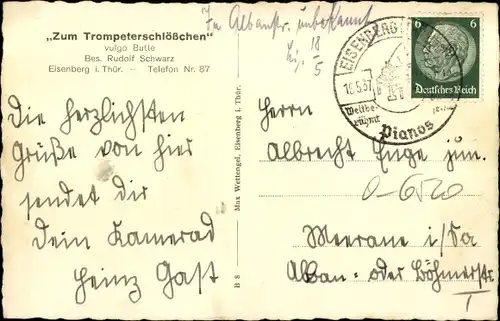 „Zum Trompeterschlößchen"
vulgo Butte
Bes. Rudolf Schwarz
Eisenberg i. Thür. - Telefon Nr. 87
Die herzlichsten
Grüße von hier
sendet dir
dein Kamerad
Heinz Gast
Max Wettengel, Eisenberg i. Thür.
B 8
In Albanstr. unbekannt
18
5
EISENBERG
18.5.37
Weltbe-
rühmt
Pianos
6
6
Deutsches Reich
Herrn
Albrecht Enge jun.
0-6520
Meerane i/Sa
Alban- oder Böhmerstr.
I